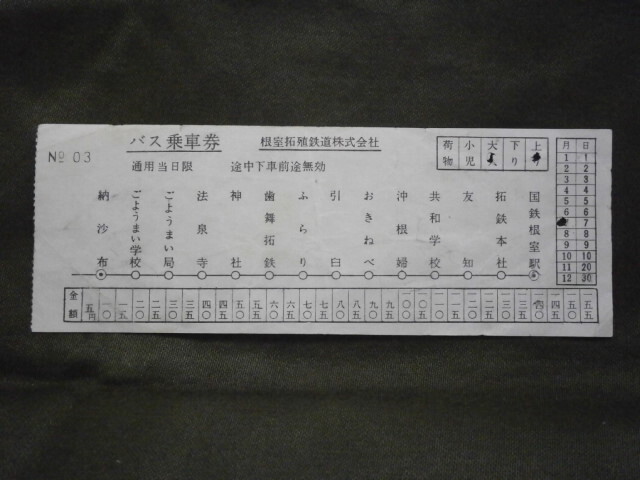 No 03
バス乗車券
根室拓殖鉄道株式会社
通用当日限 途中下車前途無効
荷物 小児 大 下り 上り
月 日
1 1
2 2
3 3
4 4
5 5
6 6
7
8 8
9 9
10 10
11 20
12 30
納沙布
ごようまい学校
ごようまい局
法泉寺
神社
歯舞拓鉄
ふらり
引臼
おきねべ
沖根婦
共和学校
友知
拓鉄本社
国鉄根室駅
金額
五円
一〇
一五
二〇
二五
三〇
三五
四〇
四五
五五
六〇
六五
七〇
七五
八〇
八五
九〇
九五
一〇〇
一〇五
一一〇
一一五
一二〇
一二五
一三〇
一四五
一五〇
一五五